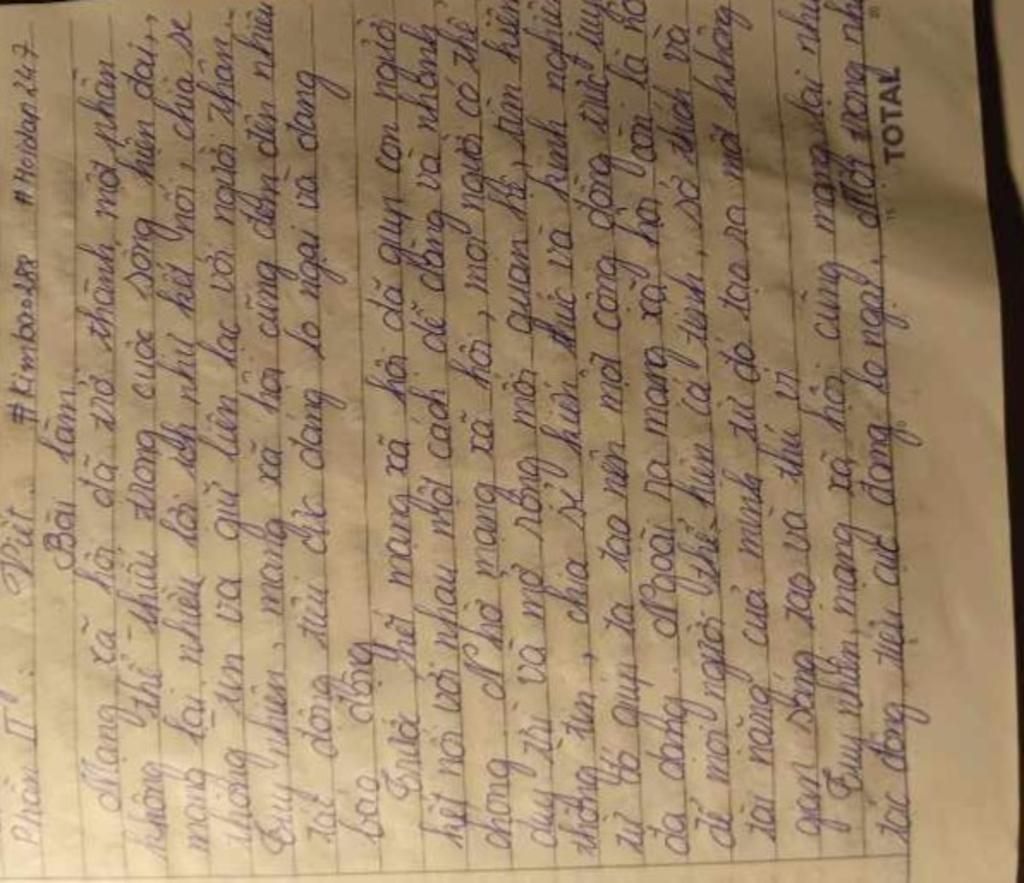 Phần II: Viết. #Kimbao288 #Hoidap247
Bài làm
Mạng xã hội đã trở thành một phần
không thể thiếu trong cuộc sống hiện đại,
mang lại nhiều lợi ích như kết nối, chia sẻ
thông tin và giữ liên lạc với người thân.
Tuy nhiên, mạng xã hội cũng đem đến nhiều
tác động tiêu cực đáng lo ngại và đang
báo động
Trước hết mạng xã hội đã giúp con người
kết nối với nhau một cách dễ dàng và nhanh
chóng. Nhờ mạng xã hội, mọi người có thể
duy trì và mở rộng mối quan hệ, tìm kiếm
thông tin, chia sẻ kiến thức và kinh nghiệ
từ đó giúp ta tạo nên một cộng đồng trực tuy
đa dạng. Ngoài ra mạng xã hội còn là nơ
để mọi người thể hiện cá tính, sở thích và
tài năng của mình từ đó tạo ra một không
gian sáng tạo và thú vị
Tuy nhiên, mạng xã hội cũng mang lại nhiề
tác động tiêu cực đáng lo ngại. Một trong nh
TOTAL